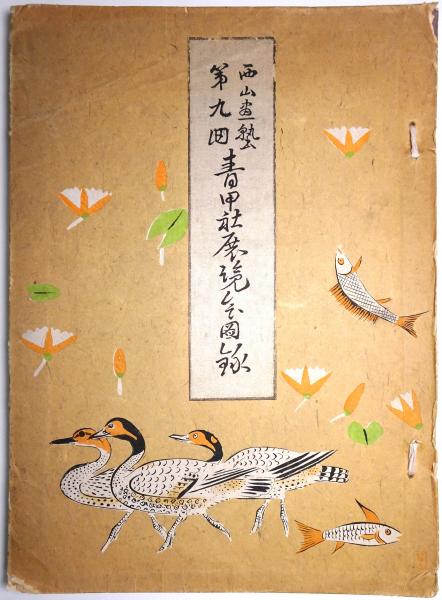 西山画塾
第九回青甲社展覧会図録